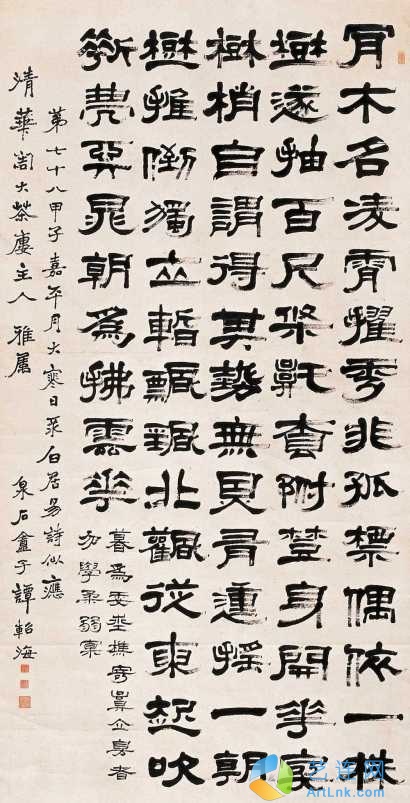 有木名凌霄擢秀非孤標偶依一株
樹遂抽百尺條託附身開花寄
樹梢自謂得其勢無因有動搖一朝
樹摧倒獨立暫飄颻從東起吹
朝為拂雲花
暮為委地樵寄言立身者
勿學柔弱
第七十八甲子嘉平月大寒日录白居易詩似應
清華大茶廔主人雅屬 泉石盦子譚軺海
ArtLnk.com